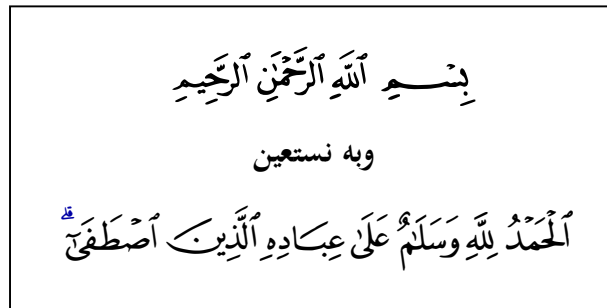 بِسْمِ ٱللَّهِ ٱلرَّحْمَٰنِ ٱلرَّحِيمِ
وبه نستعين
ٱلْحَمْدُ لِلَّهِ وَسَلَٰمٌ عَلَىٰ عِبَادِهِ ٱلَّذِينَ ٱصْطَفَىٰٓ ۗ